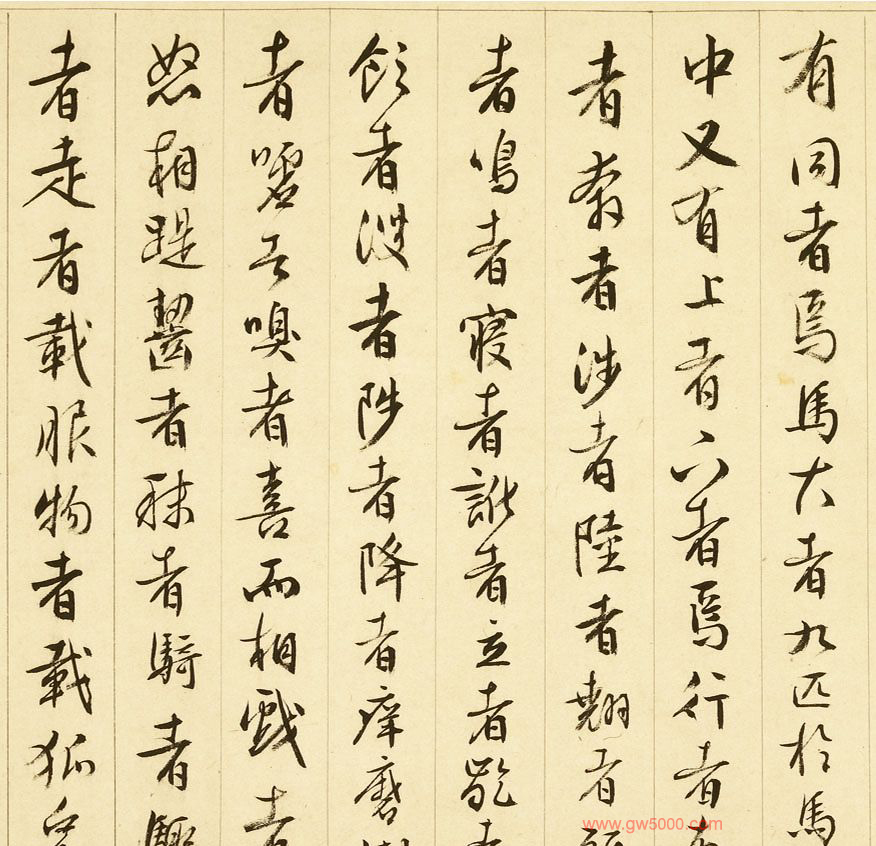 有同者焉馬大者九匹於馬
中又有上者下者焉行者
者者涉者陸者翹者
者鳴者寢者訛者立者齕者
飲者溲者陟者降者痒磨
者噓者嗅者喜而相戲者
怒相踶齧者秣者騎者驟
者走者載服物者載狐
www.gw5000.com